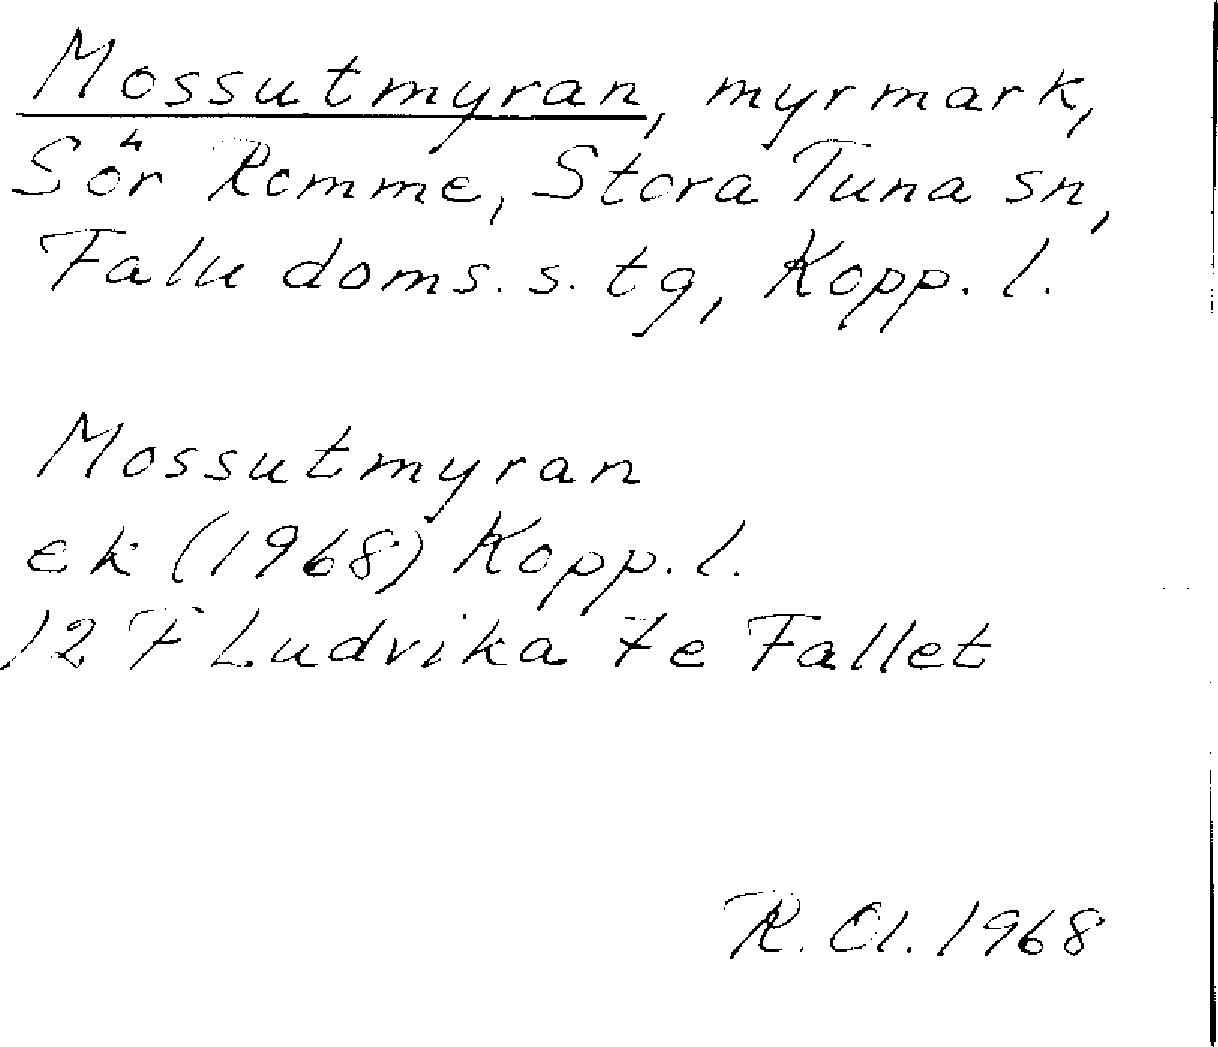 Mossutmyran, myrmark,
Sör Romme, Stora Tuna sn,
Falu doms. s. tg, Kopp. l.
Mossutmyran
ek (1968) Kopp. l.
12 F Ludvika 7e Fallet
R. Ol. 1968